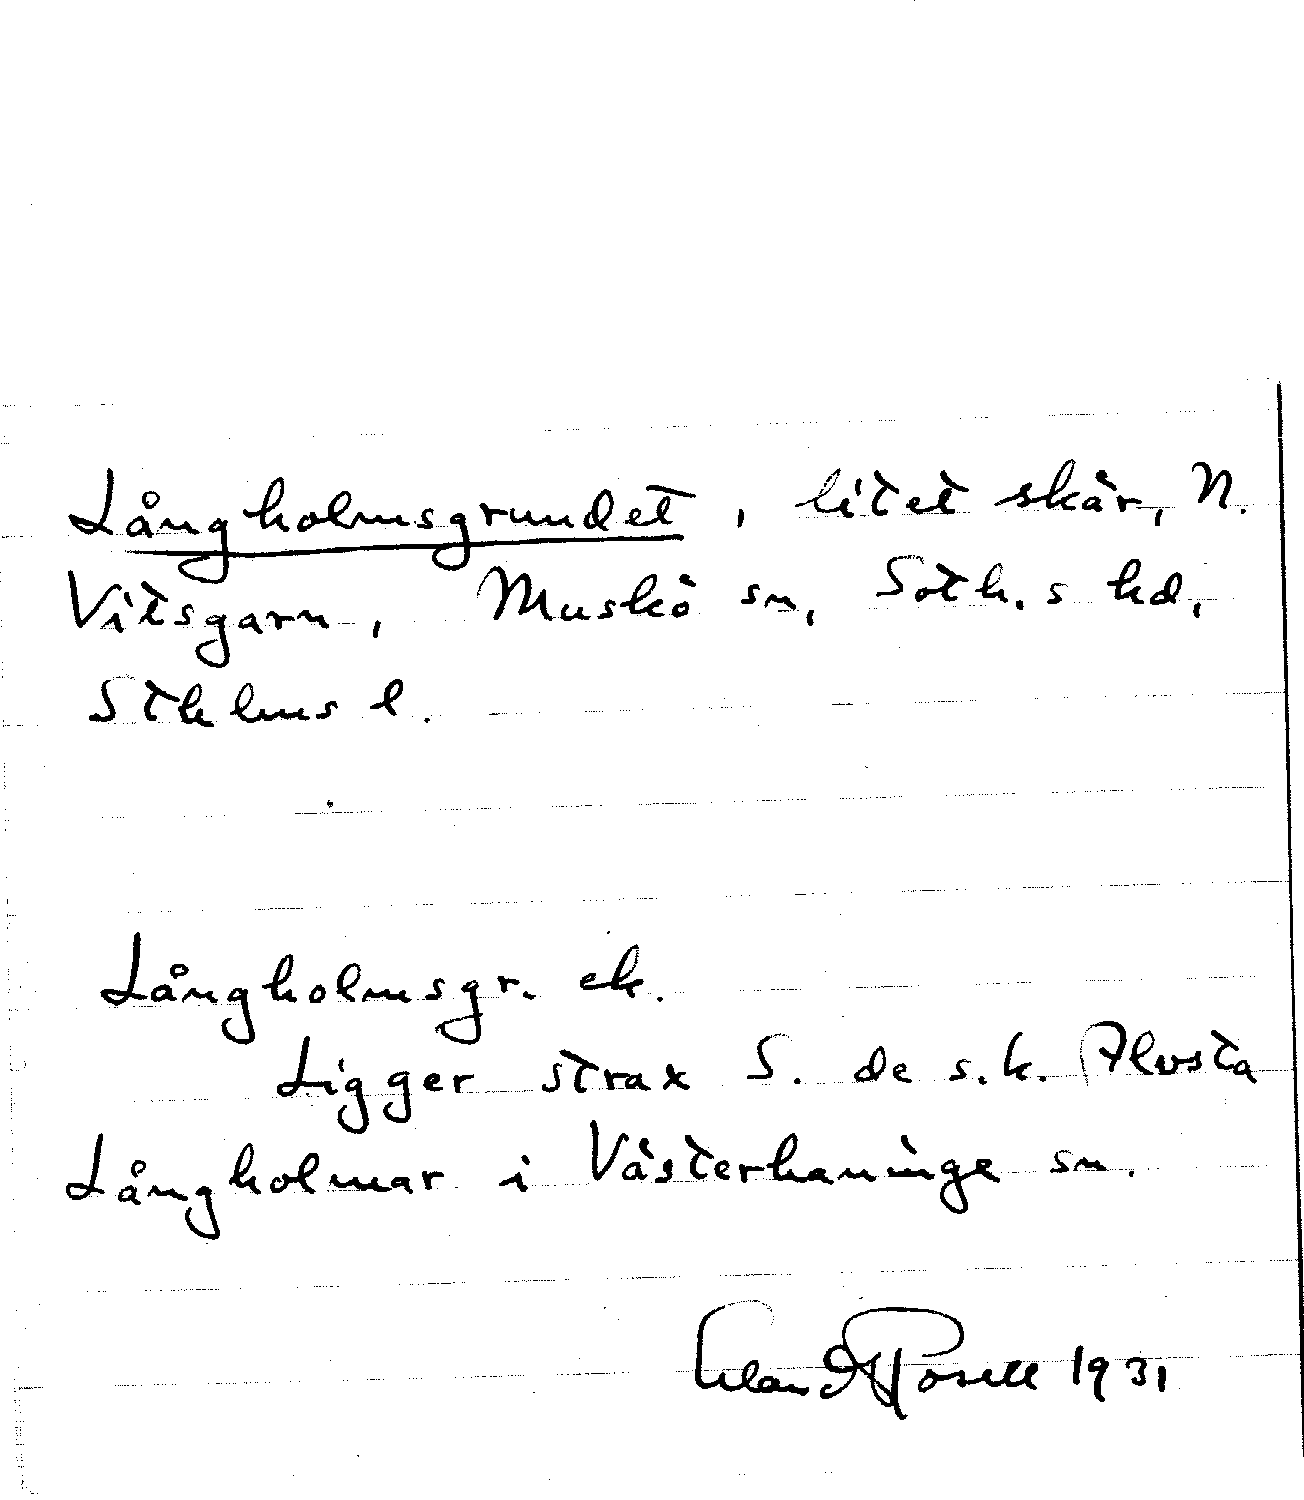 Långholmsgrundet, litet skär, N.
Vitsgarn, Muskö sn, Soth.s hd,
Sthlms l.
Långholmsgr. ek.
Ligger strax S. de s.k. Alvsta
Långholmar i Västerhaninge sn.
1931